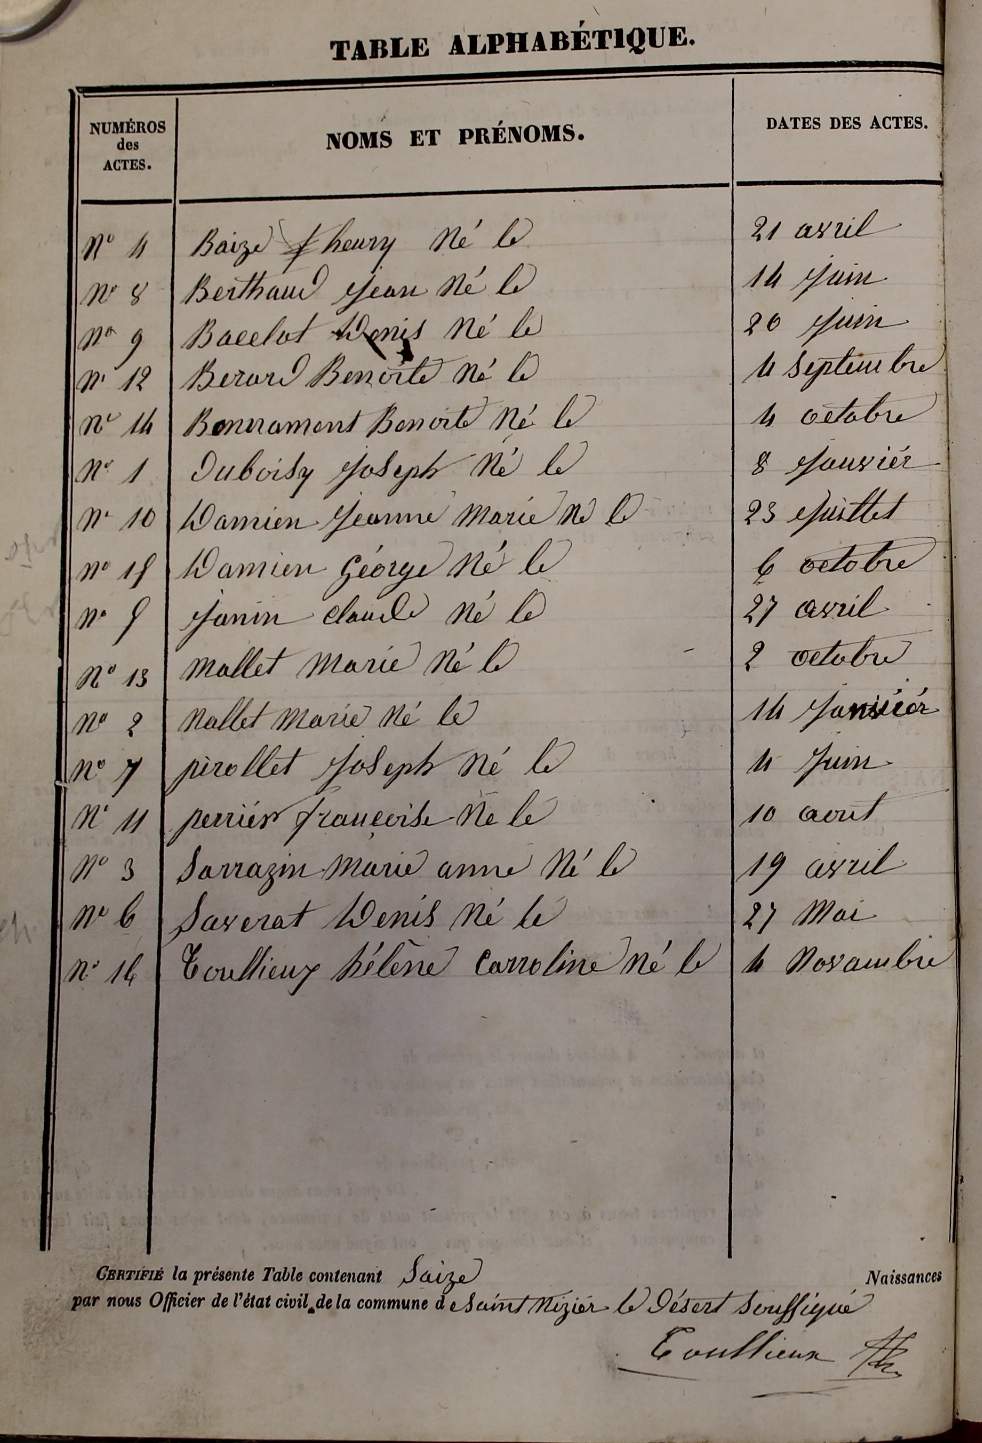 TABLE ALPHABÉTIQUE.
NUMÉROS des ACTES. NOMS ET PRÉNOMS. DATES DES ACTES.
N° 4 Baize fheury Né le 21 avril
N° 8 Berthaud Jean Né le 14 Juin
N° 9 Bacelot Denis Né le 20 Juin
N° 12 Berard Benoite Né le 4 Septembre
N° 14 Bonnamont Benoite Né le 4 octobre
N° 1 Duboisy Joseph Né le 8 Janviér
N° 10 Damien Jeanne Marie Né le 23 Juillet
N° 15 Damien Géorge Né le 6 octobre
N° 5 Janin Claude Né le 27 avril
N° 13 Mallet Marie Né le 2 octobre
N° 2 Nallet Marie Né le 14 Janviér
N° 7 pirollet Joseph Né le 4 Juin
N° 11 perriér françoise Né le 10 aout
N° 3 Sarrazin Marie anne Né le 19 avril
N° 6 Saverat Denis Né le 27 Mai
N° 16 Toullieux hélène Carroline Né le 4 Novambre
CERTIFIÉ la présente Table contenant Saize Naissances
par nous Officier de l'état civil de la commune de Saint Niziér le Désert Soussigné
Toullieux